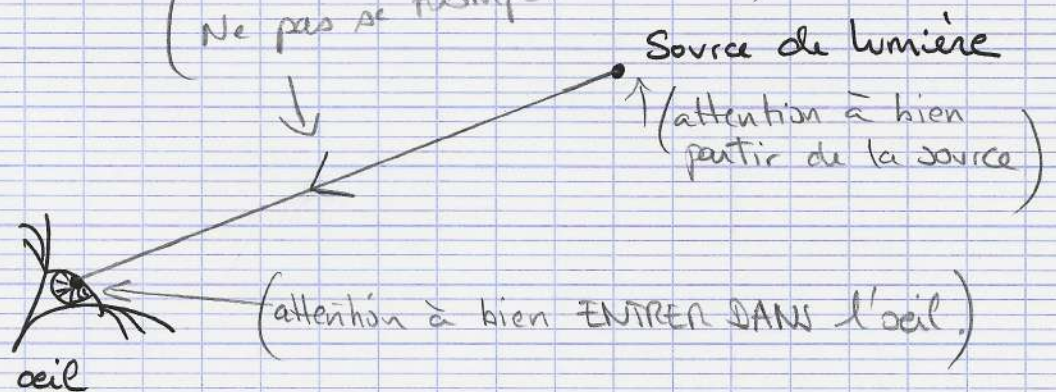 (Ne pas se
Source de lumière
(attention à bien
partir de la source)
(attention à bien ENTRER DANS l'oeil.)
oeil